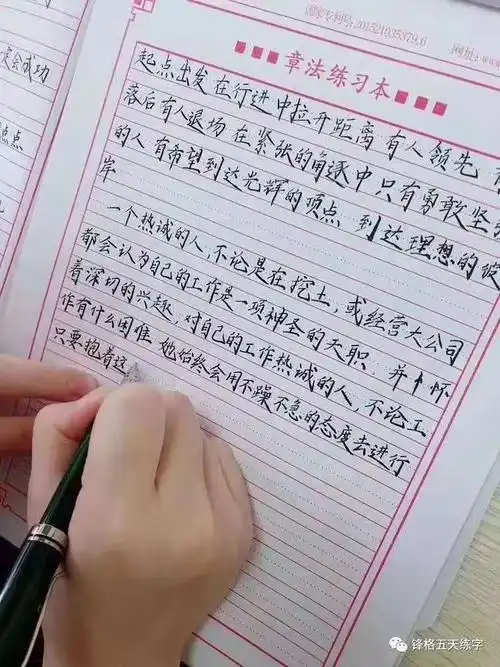 国家专利号:201521035379.6
网址:www
章法练习本
定会成功
点点
起点出发 在行进中拉开距离 有人领先 有
落后有人退场 在紧张的角逐中只有勇敢坚
的人 有希望到达光辉的顶点 到达理想的彼
岸
一个热诚的人,不论是在挖土,或经营大公司
都会认为自己的工作是一项神圣的天职,并怀
着深切的兴趣,对自己的工作热诚的人,不论工
作有什么困难 她始终会用不躁不急的态度去进行
只要抱着这
锋格五天练字